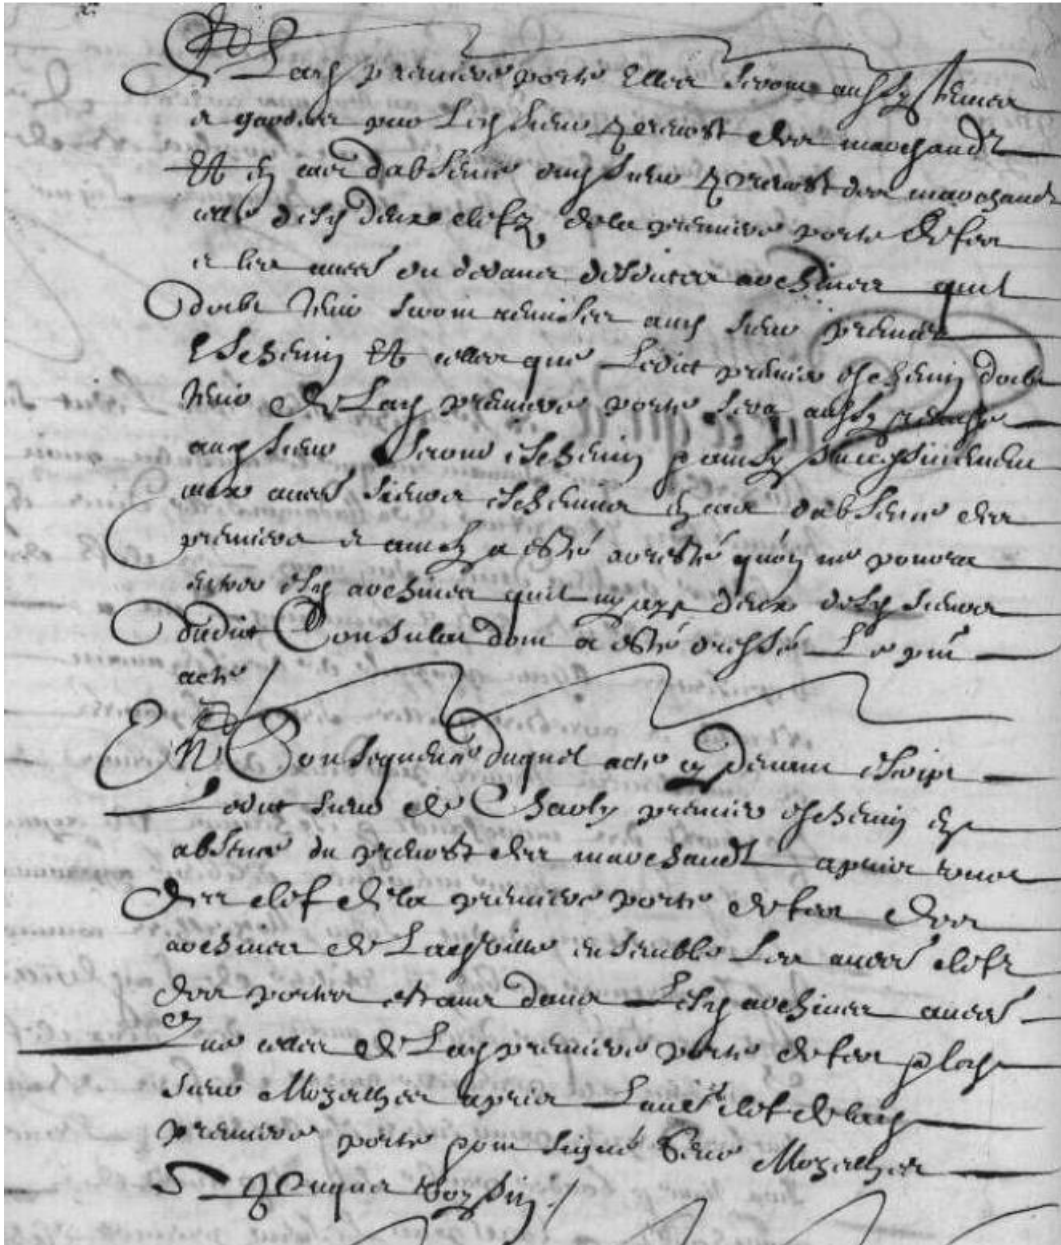 De
Lad premiere porte Elles seront aussy tenues
et gardées par Led sieur prevost des marchandz
Et en cas dabsence dud sieur prevost des marchandz
desd deux clefz de la premiere porte de fer
et les autres du devant desdictes archives quil
doibt tenir seront remises aud sieur premier
Eschevin Et celles que Ledict premier eschevin doibt
tenir de Lad premiere porte sera aussy remise
aud sieur second eschevin & ainsy successivement
aux autres sieurs eschevins en cas dabsence des
premiers et ainsy a esté aresté quon ne pourra
entrer esd archives quil ny aye deux desd sieurs
dudict Consulat dont a esté dressé Le pnt
acte /
EN Consequence duquel acte cy devant escript
Ledict sieur de Charly premier eschevin en
absence du prevost des marchandz a prins une
des clef de la premiere porte de fer des
archives de Lad ville ensemble Les autres clefz
des portes estans dans Lesd archives autres
que celles de Lad premiere porte de fer & led
sieur a prins Laultre clef de lad
premiere porte & ont signé